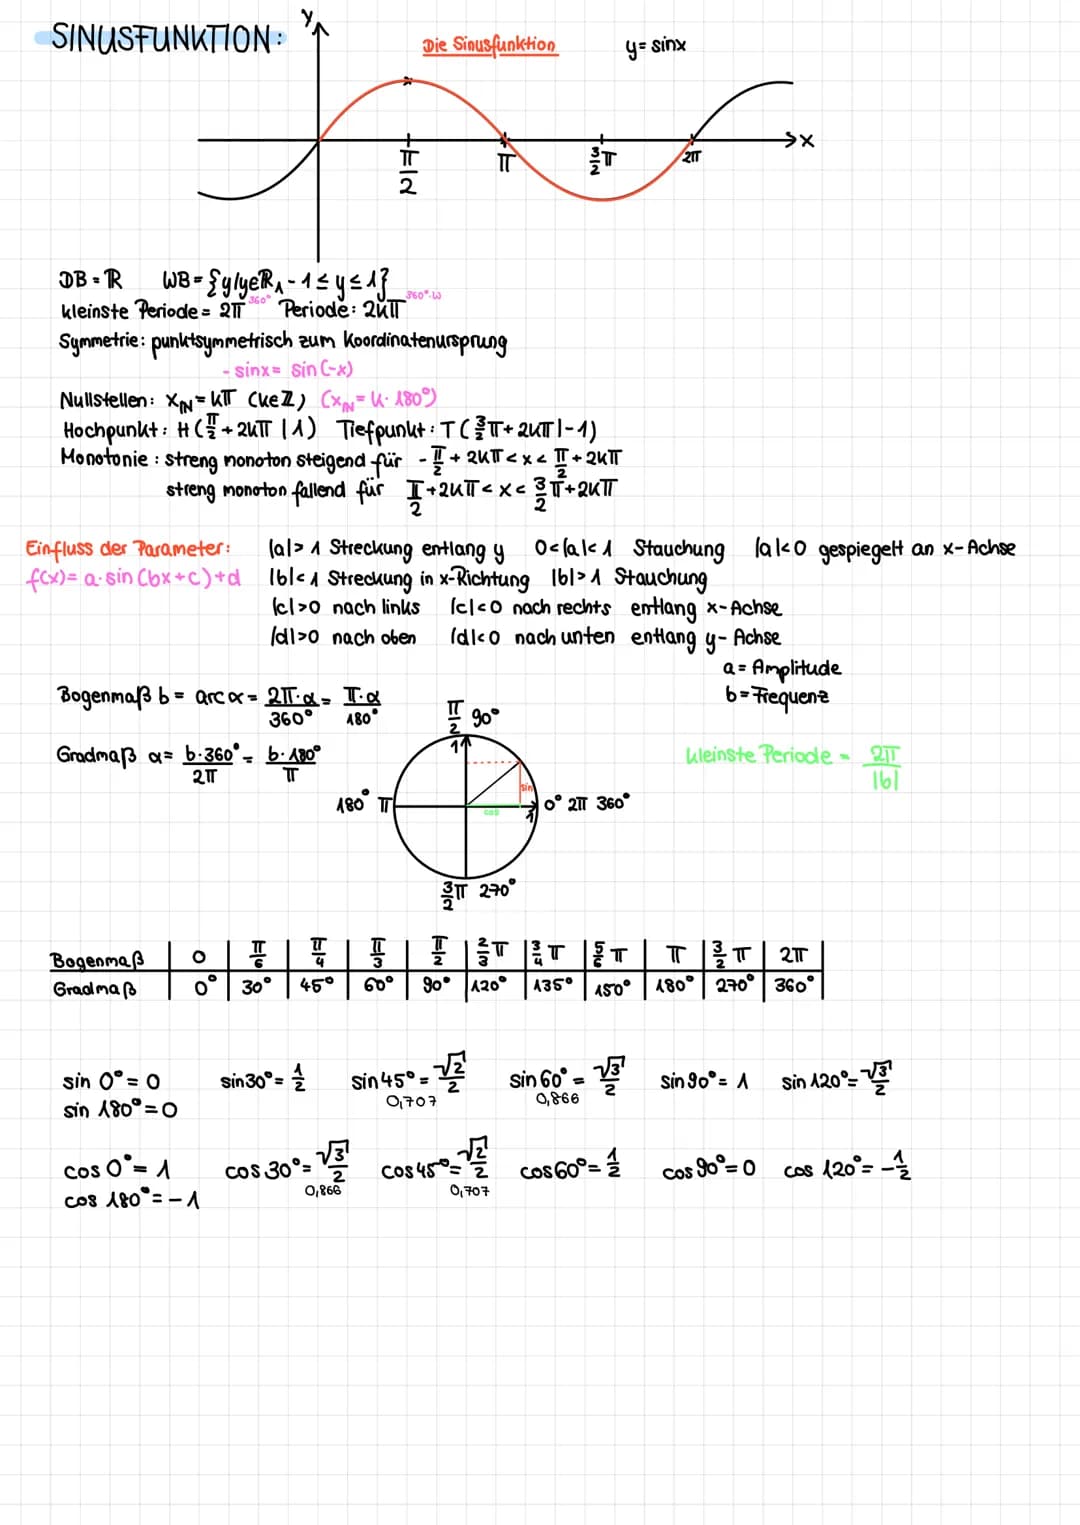 SINUSFUNKTION:
y
Die Sinusfunktion
y = sinx
x
π/2
π
3/2 π
2π
DB = ℝ WB = {y/y∈ℝ ∧ -1 ≤ y ≤ 1}
kleinste Periode = 2π 360° Periode: 2kπ 360°·k
Symmetrie: punktsymmetrisch zum Koordinatenursprung
- sinx = sin(-x)
Nullstellen: x_N = kπ (k∈ℤ) (x_N = k · 180°)
Hochpunkt: H (π/2 + 2kπ | 1) Tiefpunkt: T (3/2 π + 2kπ | -1)
Monotonie: streng monoton steigend für -π/2 + 2kπ < x < π/2 + 2kπ
streng monoton fallend für π/2 + 2kπ < x < 3/2 π + 2kπ
Einfluss der Parameter: |a| > 1 Streckung entlang y 0 < |a| < 1 Stauchung |a| < 0 gespiegelt an x-Achse
f(x) = a · sin (bx + c) + d |b| < 1 Streckung in x-Richtung |b| > 1 Stauchung
|c| > 0 nach links |c| < 0 nach rechts entlang x-Achse
|d| > 0 nach oben |d| < 0 nach unten entlang y-Achse
a = Amplitude
b = Frequenz
Bogenmaß b = arc α = 2π·α/360° = π·α/180°
Gradmaß α = b·360°/2π = b·180°/π
kleinste Periode = 2π/|b|
π/2 90°
1
sin
cos
1
180° π
0° 2π 360°
3/2 π 270°
Bogenmaß | 0 | π/6 | π/4 | π/3 | π/2 | 2/3 π | 3/4 π | 5/6 π | π | 3/2 π | 2π
Gradmaß | 0° | 30° | 45° | 60° | 90° | 120° | 135° | 150° | 180° | 270° | 360°
sin 0° = 0 sin 30° = 1/2 sin 45° = √2/2 sin 60° = √3/2 sin 90° = 1 sin 120° = √3/2
0,707 0,866
sin 180° = 0
cos 0° = 1 cos 30° = √3/2 cos 45° = √2/2 cos 60° = 1/2 cos 90° = 0 cos 120° = -1/2
0,866 0,707
cos 180° = -1